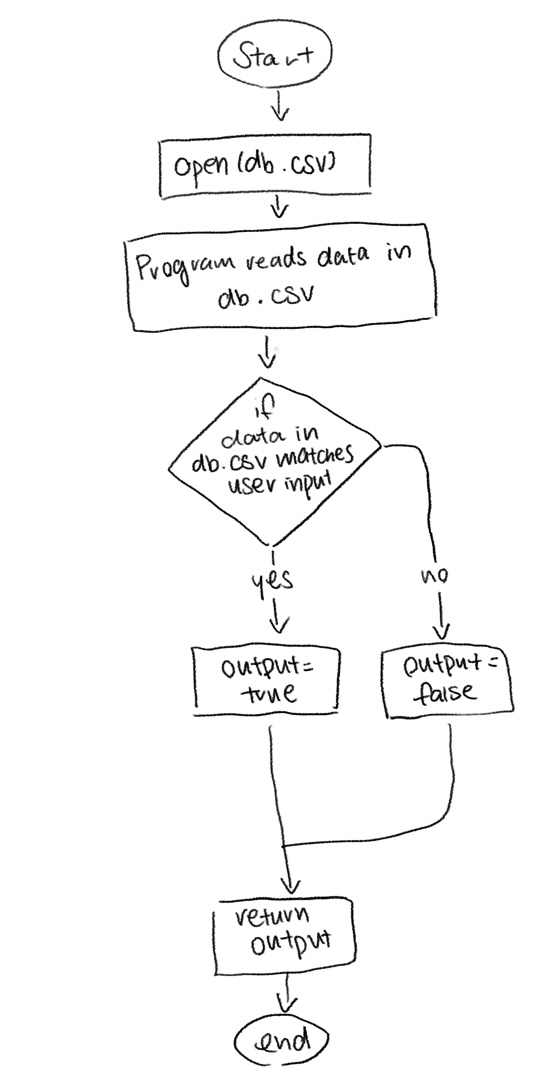 Start
open(db.csv)
Program reads data in
db.csv
if
data in
db.csv matches
user input
yes
no
output=
true
output=
false
return
output
end